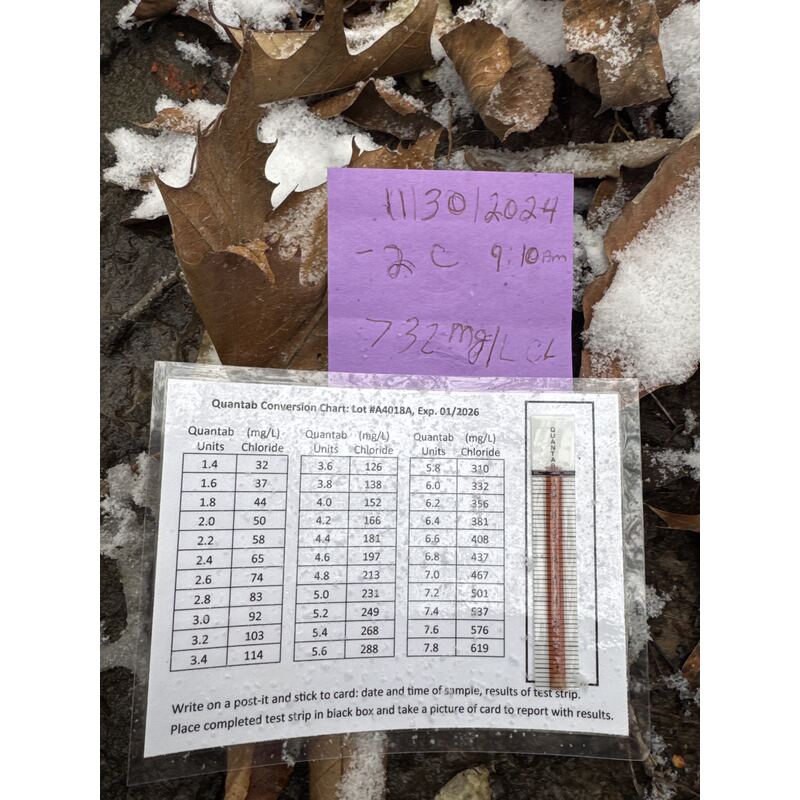 11/30/2024
-2 C 9:10am
>32 mg/L CL
Quantab Conversion Chart: Lot #A4018A, Exp. 01/2026
Quantab Units (mg/L) Chloride Quantab Units (mg/L) Chloride Quantab Units (mg/L) Chloride
1.4 32 3.6 126 5.8 310
1.6 37 3.8 138 6.0 332
1.8 44 4.0 152 6.2 356
2.0 50 4.2 166 6.4 381
2.2 58 4.4 181 6.6 408
2.4 65 4.6 197 6.8 437
2.6 74 4.8 213 7.0 467
2.8 83 5.0 231 7.2 501
3.0 92 5.2 249 7.4 537
3.2 103 5.4 268 7.6 576
3.4 114 5.6 288 7.8 619
QUANTAB
Write on a post-it and stick to card: date and time of sample, results of test strip.
Place completed test strip in black box and take a picture of card to report with results.